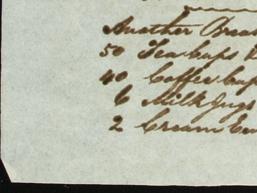 Another Brea
50 Tea Cups
40 Coffee Cup
6 Milk Jugs
2 Cream